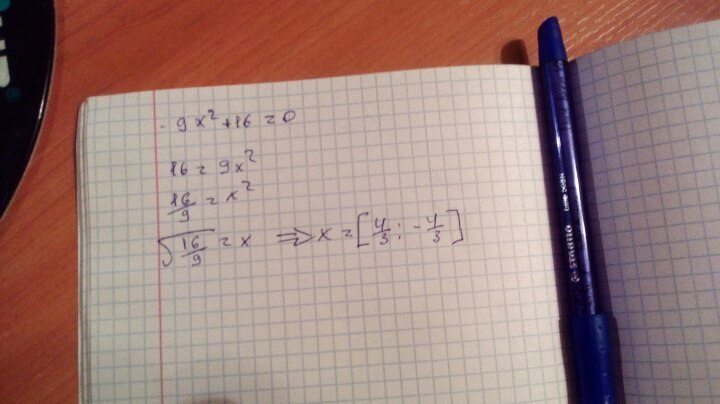 - 9x² + 16 = 0
16 = 9x²
16/9 = x²
√16/9 = x ⇒ x = [4/3 ; - 4/3]
STABILO